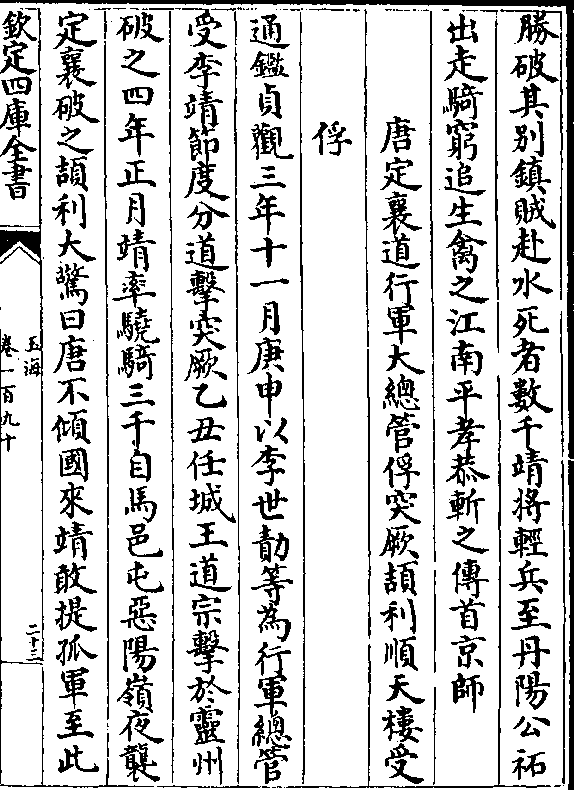 勝破其别鎮賊赴水死者數千靖将輕兵至丹陽公祏
出走騎窮追生禽之江南平孝恭斬之傳首京師
唐定襄道行軍大總管俘突厥頡利順天樓受
俘
通鑑貞觀三年十一月庚申以李世勣等為行軍總管
受李靖節度分道擊突厥乙丑任城王道宗擊於靈州
破之四年正月靖率驍騎三千自馬邑屯惡陽嶺夜襲
定襄破之頡利大驚曰唐不傾國來靖敢提孤軍至此
欽定四庫全書
玉海
卷一百九十
二十二